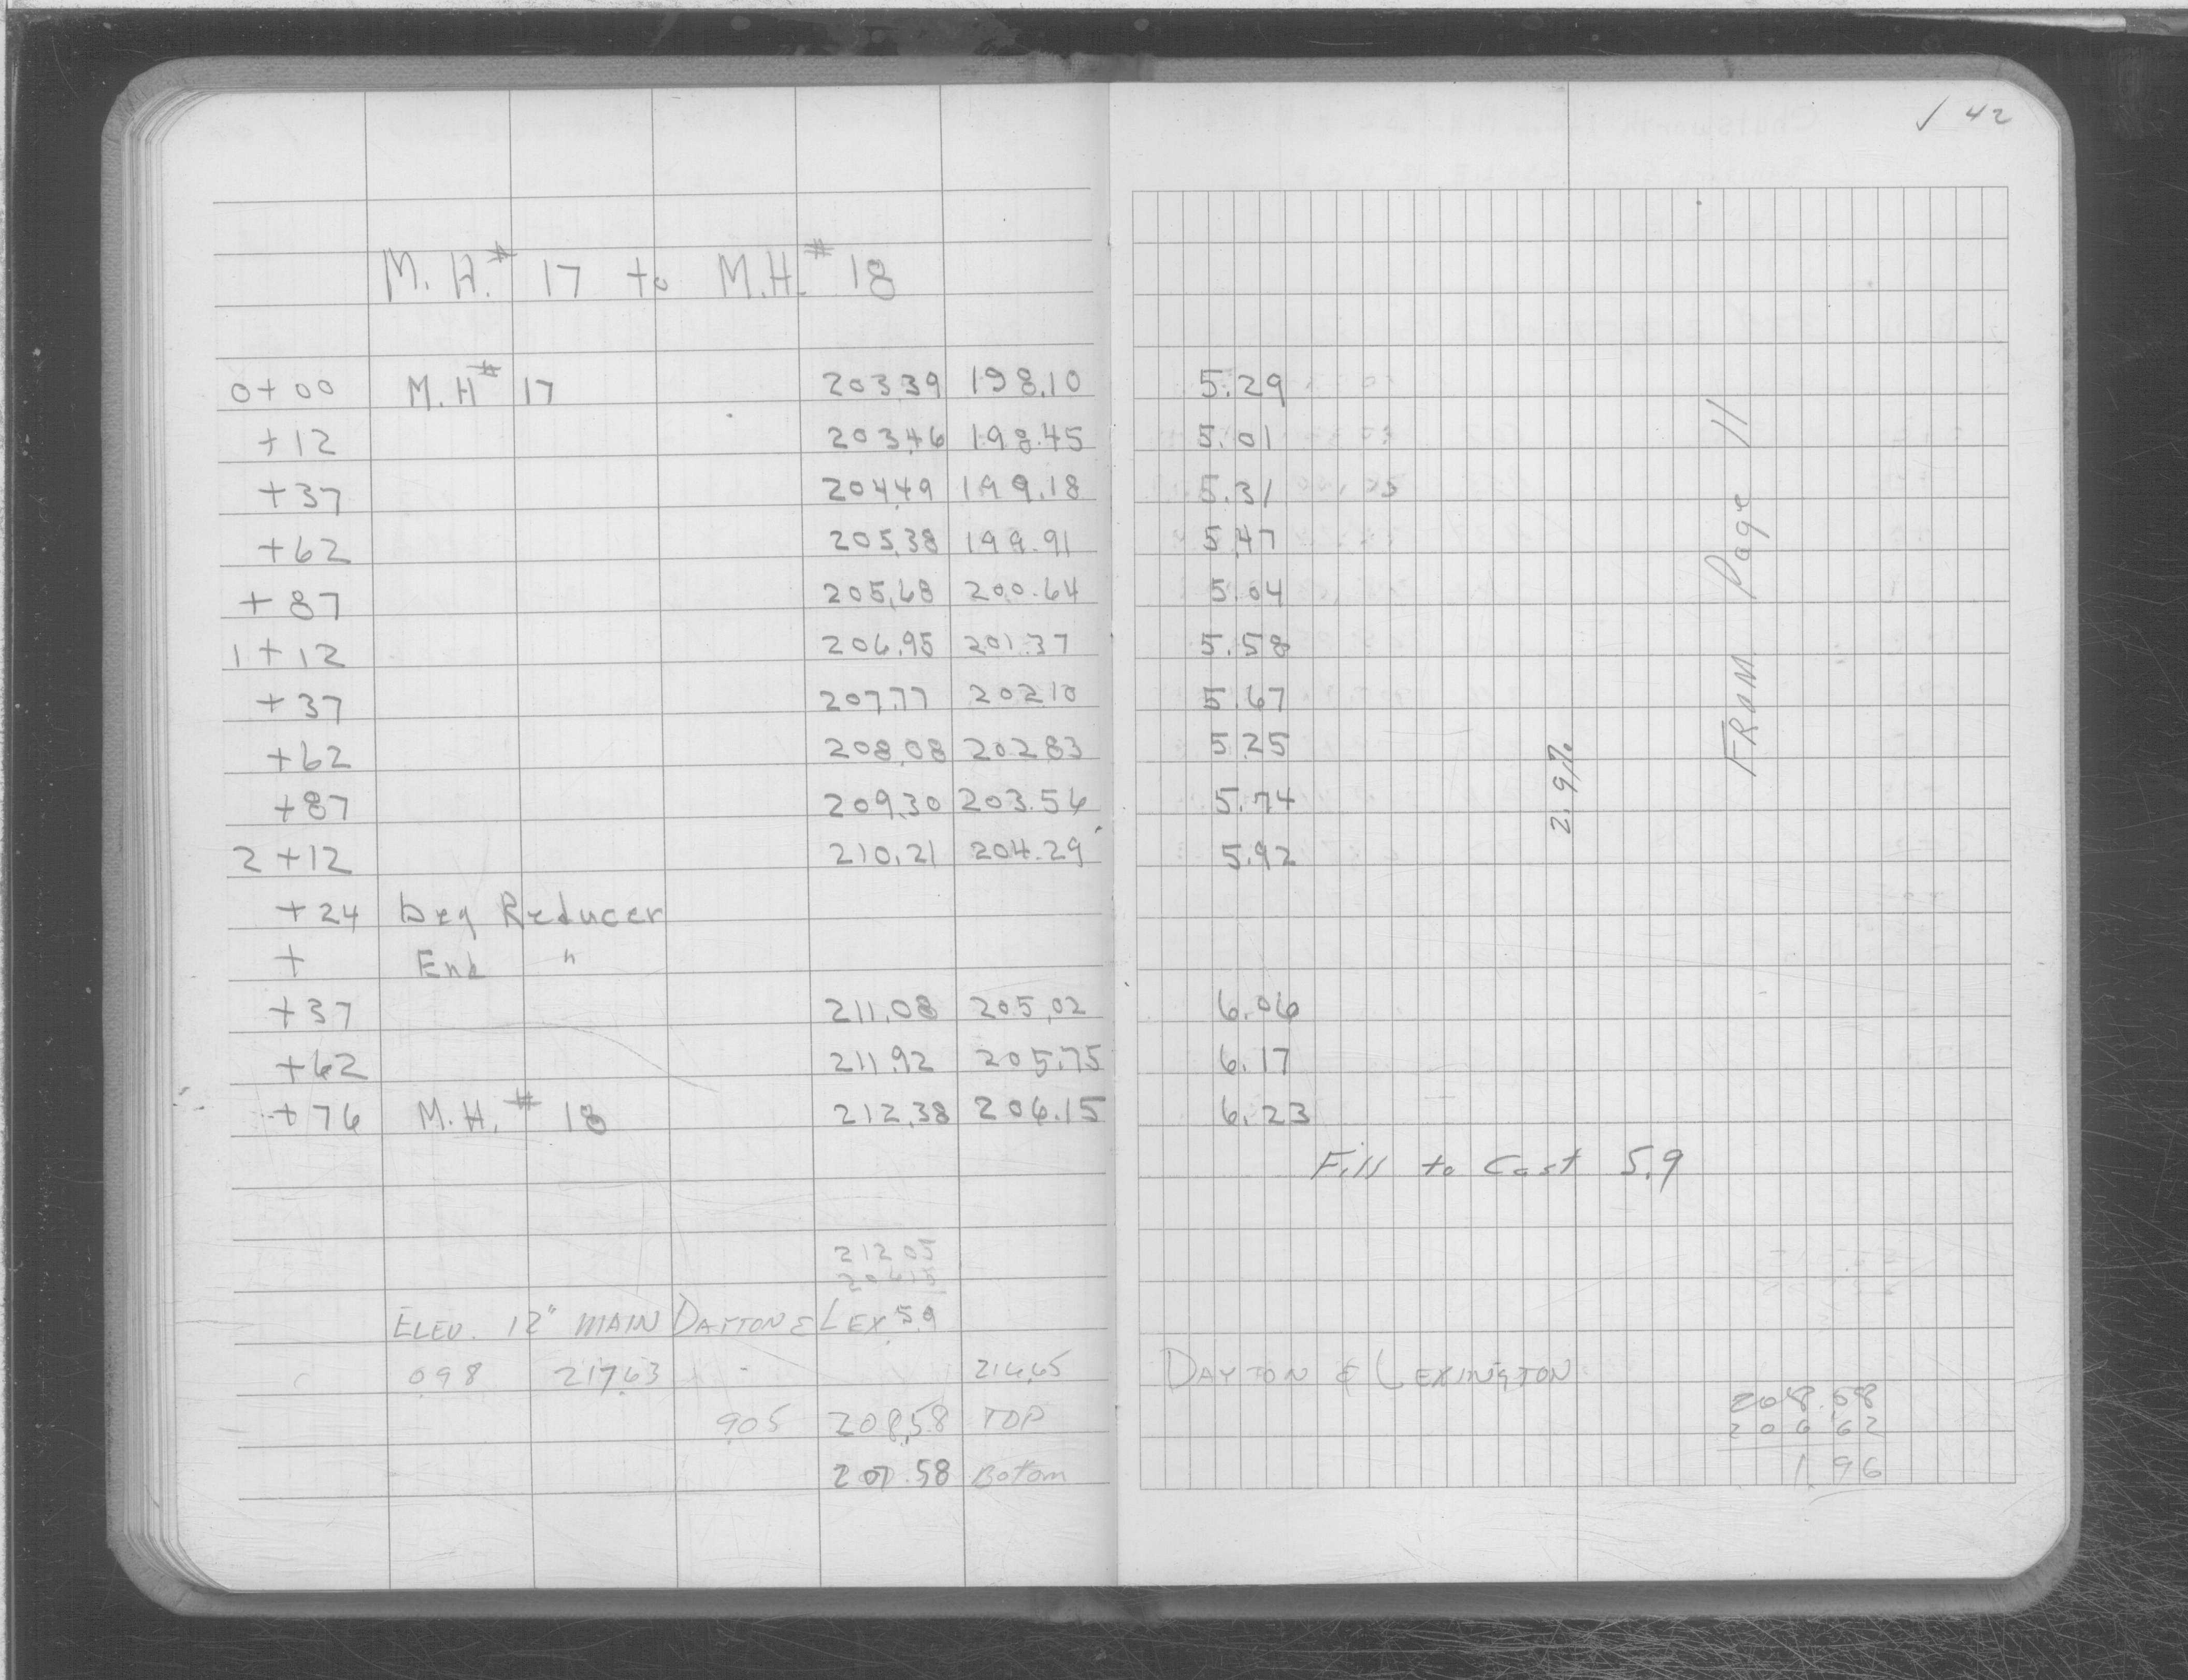 ✓ 42
M.H.# 17 to M.H.# 18
0+00 M.H# 17 203.39 198.10 5.29
+12 203.46 198.45 5.01
+37 204.49 199.18 5.31
+62 205.38 199.91 5.47
+87 205.68 200.64 5.04
1+12 206.95 201.37 5.58
+37 207.77 202.10 5.67
+62 208.08 202.83 5.25
+87 209.30 203.56 5.74
2+12 210.21 204.29 5.92
+24 beg Reducer
+ End "
+37 211.08 205.02 6.06
+62 211.92 205.75 6.17
+76 M.H.# 18 212.38 206.15 6.23
2.9%
FROM Page 11
Fill to Cast 5.9
212 05
206 15
5 9
ELEV. 12" MAIN DAYTON & LEX
0.98 217.63 - 216.65 DAYTON & LEXINGTON
9.05 208.58 TOP
207.58 Bottom
208.58
206 62
1.96